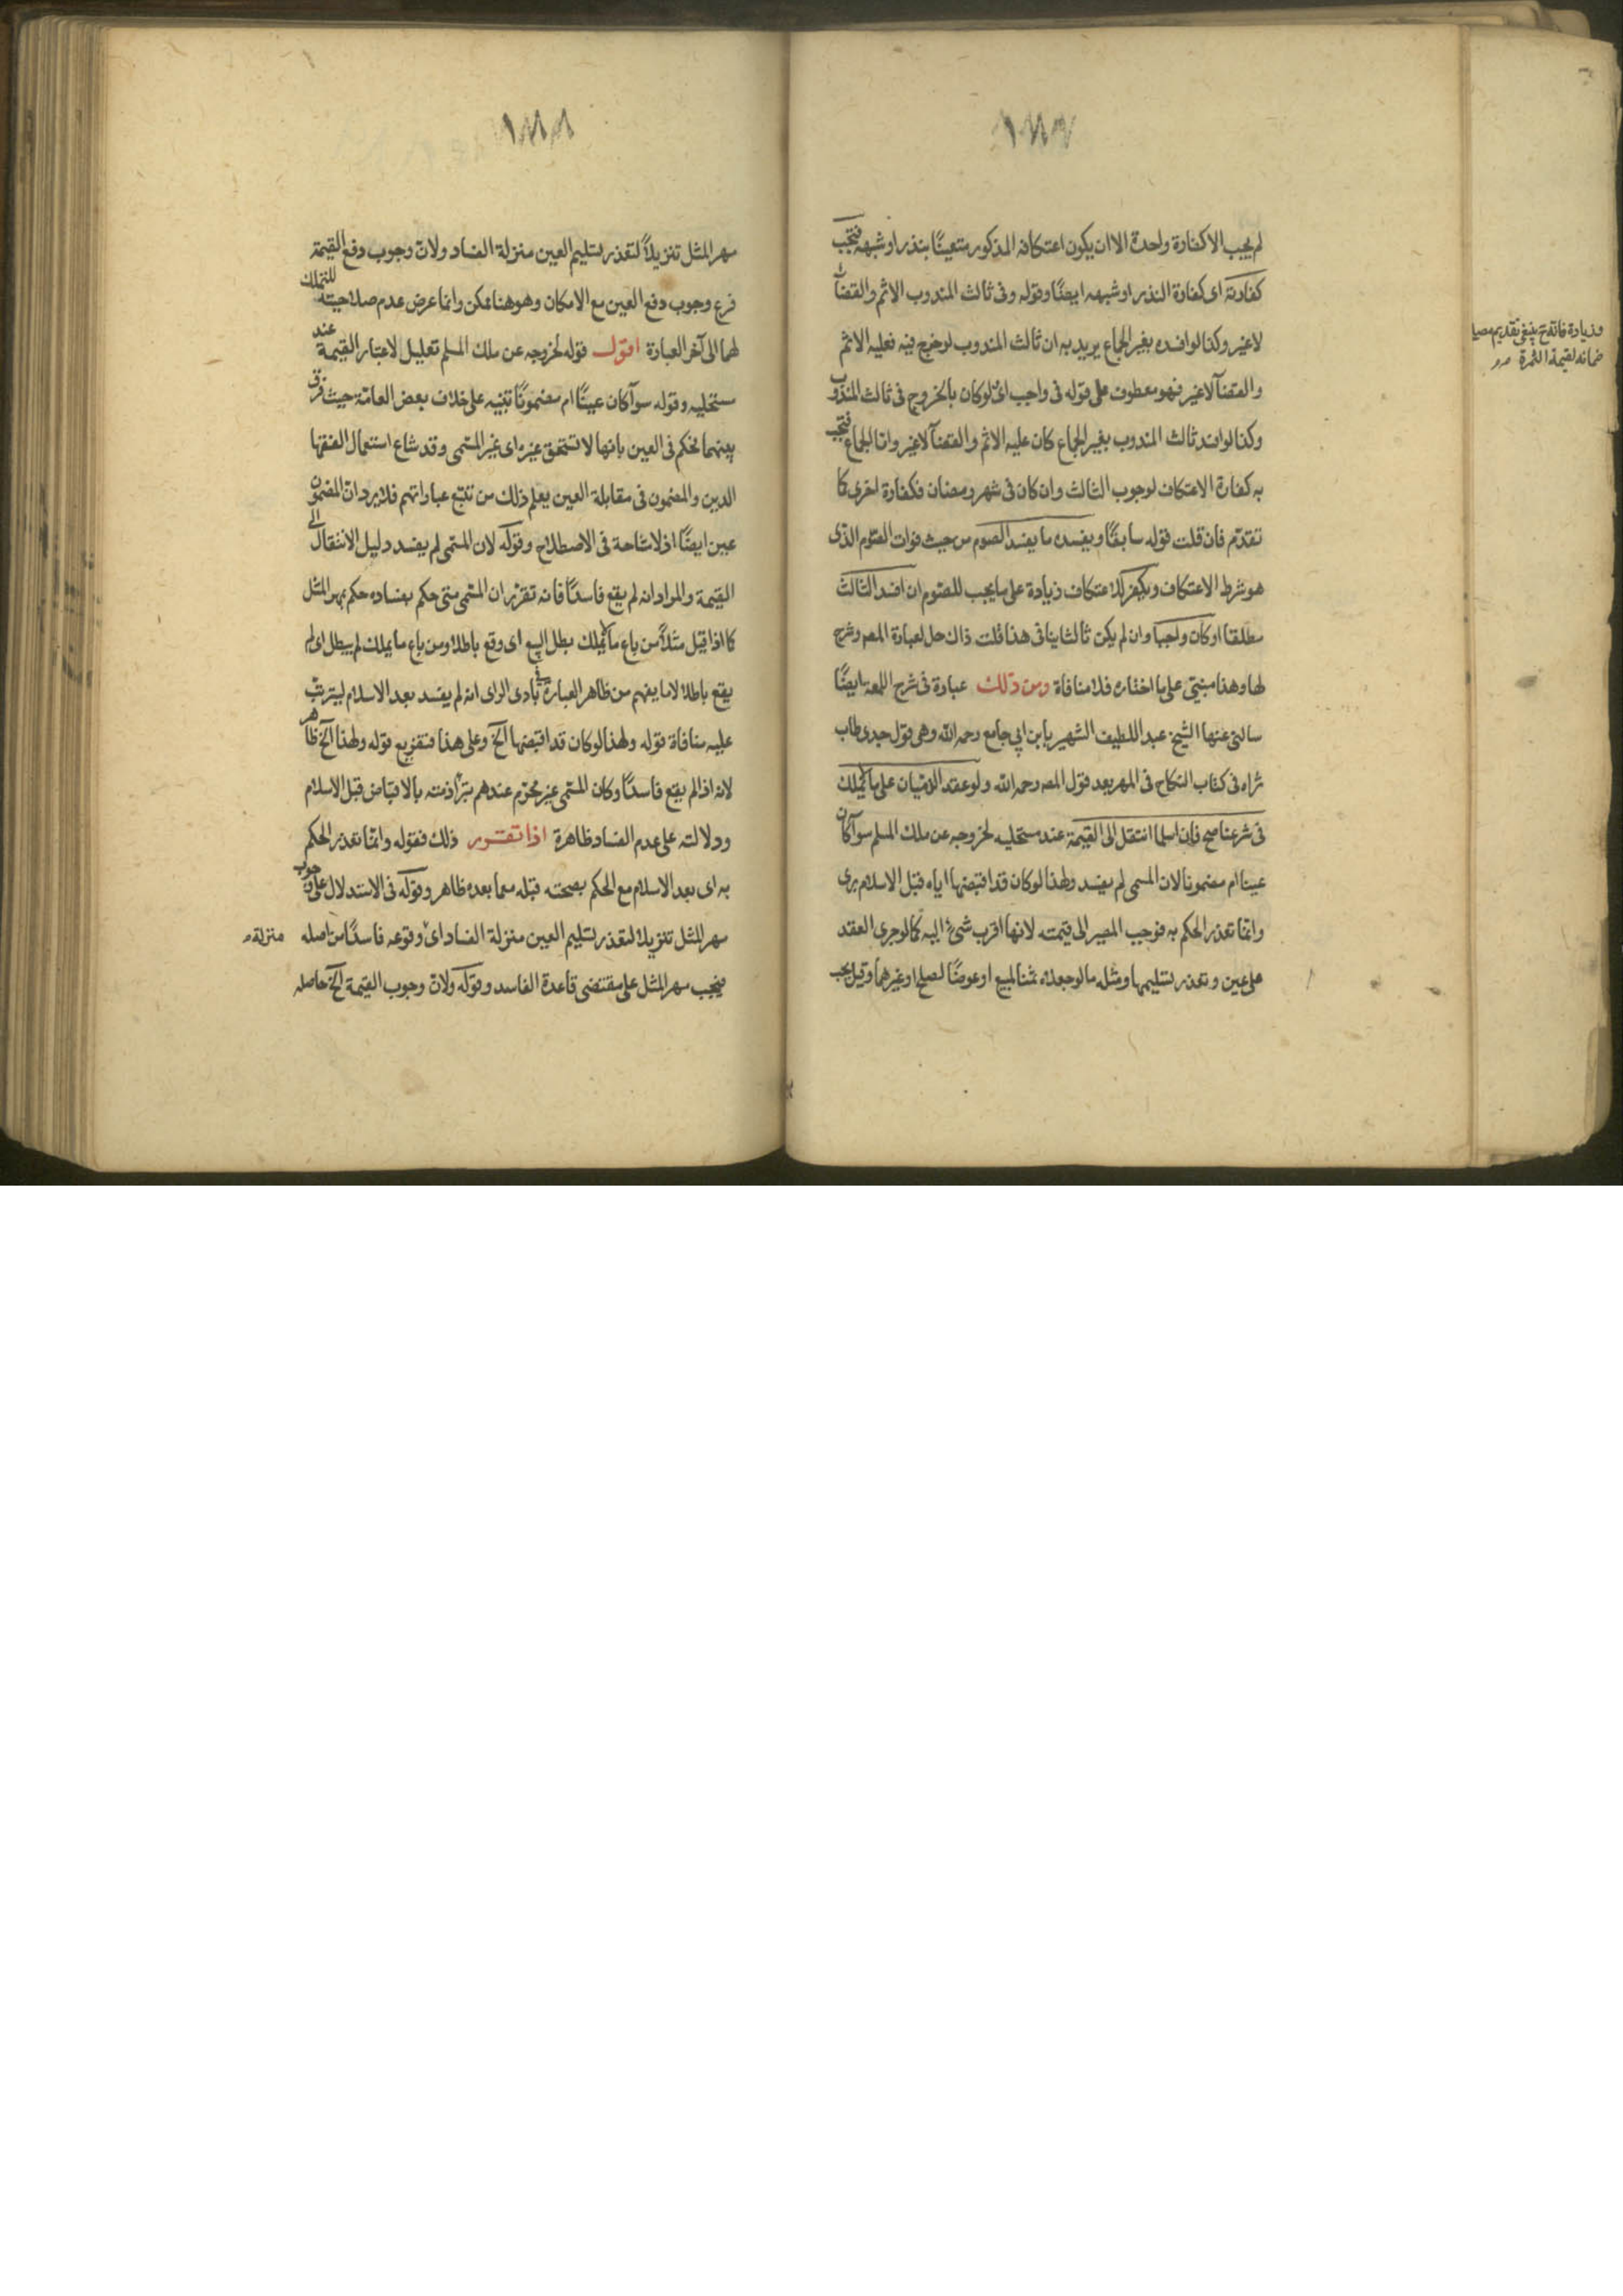 ١٨٧
لم يجب الا كفارة واحدة الا ان يكون اعتكافه المذكور متعينًا بنذر او شبهه فتجب
كفارته اى كفارة النذر او شبهه ايضًا وقوله وفى ثالث المندوب الاثم والقضآ
لا غير وكذا لو افسده بغير الجماع يريد به ان ثالث المندوب لو خرج فيه فعليه الاثم
والقضآ لا غير فهو معطوف على قوله فى واجب اى لو كان بالخروج فى ثالث المندوب
وكذا لو افسد ثالث المندوب بغير الجماع كان عليه الاثم والقضآ لا غير واما الجماع فتجب
به كفارة الاعتكاف لوجوب الثالث وان كان فى شهر رمضان فكفارة اخرى كما
تقدّم فان قلت قوله سابقًا ويفسده ما يفسد الصوم من حيث فوات الصّوم الذى
هو شرط الاعتكاف ويكفر للاعتكاف زيادة على ما يجب للصّوم ان افسد الثالث
مطلقا او كان واجبا وان لم يكن ثالثا ينافى هذا قلت ذاك حل لعبارة المصـ وشرح
لها وهذا مبنىّ على ما اختاره فلا منافاة ومن ذلك عبارة فى شرح اللمعة ايضًا
سالنى عنها الشيخ عبد اللطيف الشهير بابن ابى جامع رحمه الله وهى قول جدى طاب
ثراه فى كتاب النكاح فى المهر بعد قول المصـ رحمه الله ولو عقد الذميان على ما لا يملك
فى شرعنا صح فان اسلما انتقل الى القيمة عند مستحليه لخروجه عن ملك المسلم سوآ كان
عينا ام مضمونا لان المسمى لم يفسد ولهذا لو كان قد اقبضها اياه قبل الاسلام برى
وانما تعذر الحكم به فوجب المصير الى قيمته لانها اقرب شئ اليه كما لو جرى العقد
على عين وتعذر تسليمها ومثله ما لو جعلاه ثمنا لمبيع او عوضًا لصلح او غيرهما وقيل يجب
ضمانه لقيمة الثمرة
١٨٨
مهر المثل تنزيلاً لتعذر تسليم العين منزلة الفساد ولانّ وجوب دفع القيمة
فرع وجوب دفع العين مع الامكان وهو هنا ممكن وانما عرض عدم صلاحيته للتملك
لهما الى آخر العبارة اقول قوله لخروجه عن ملك المسلم تعليل لاعتبار القيمة عند
مستحليه وقوله سوآ كان عينًا ام مضمونًا تنبيه على خلاف بعض العامّة حيث فرق
بينهما فحكم فى العين بانها لا تستحق غيره اى غير المسمّى وقد شاع استعمال الفقها
الدين والمضمون فى مقابلة العين يعلم ذلك من تتبّع عباراتهم فلا يرد انّ المضمون
عين ايضًا اذ لا مشاحة فى الاصطلاح وقوله لان المسمّى لم يفسد دليل الانتقال الى
القيمة والمراد انه لم يقع فاسدًا فانه تقرّر ان المسمّى متى حكم بفساده حكم بمهر المثل
كما اذا قيل مثلاً من باع ما لا يملك بطل البيع اى وقع باطلا ومن باع ما يملك لم يبطل اى لم
يقع باطلا لا ما يفهم من ظاهر العبارة فى بادى الراى انه لم يفسد بعد الاسلام ليترتّب
عليه منافاة قوله ولهذا لو كان قد اقبضها الخ وعلى هذا فتفريع قوله ولهذا الخ ظاهر
لانه اذا لم يقع فاسدًا وكان المسمّى غير محرّم عندهم تبرّأ ذمته بالاقباض قبل الاسلام
ودلالته على عدم الفساد ظاهرة اذا تقرر ذلك فقوله وانّما تعذر الحكم
به اى بعد الاسلام مع الحكم بصحته قبله مما بعده ظاهر وقوله فى الاستدلال على وجوب
مهر المثل تنزيلا لتعذر تسليم العين منزلة الفساد اى وقوعه فاسدًا من اصله
منزلة
فيجب مهر المثل على مقتضى قاعدة الفاسد وقوله ولانّ وجوب القيمة الخ حاصله